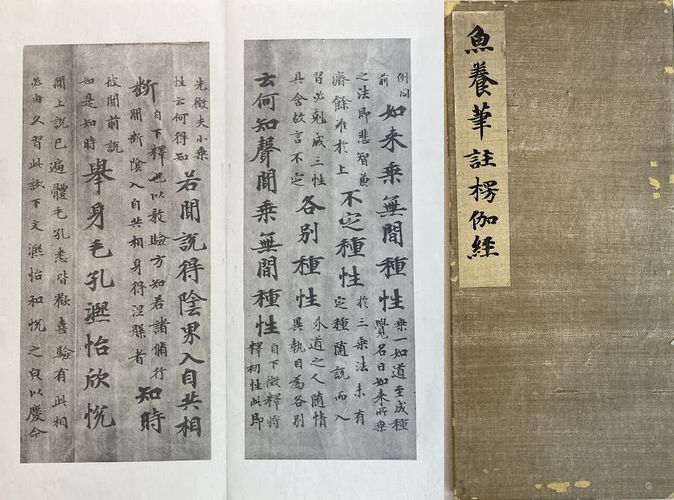 例同
前
如来乗無間種性
乗一如道至成種
覺名曰如来所乗
之法即悲智兼
濟餘唯於上
不定種性
於三乗法未有
定種随説而入
習必剋成三性
具含故言不定
各別種性
外道之人随情
異執目為各別
云何知聲聞乗無間種性
自下徴釋将
釋初性此即
先徴夫小乗
性云何得知
若聞説得陰界入自共相
断
自下釋也以教驗方知若諸脩行
聞断陰入自共相身得涅槃者
知時
彼聞前説
如是知時
舉身毛孔熈怡欣悦
聞上説已遍體毛孔悉皆歡喜驗有此相
必由久習此該下文熈怡和悦之皃以慶今
魚養筆註楞伽経